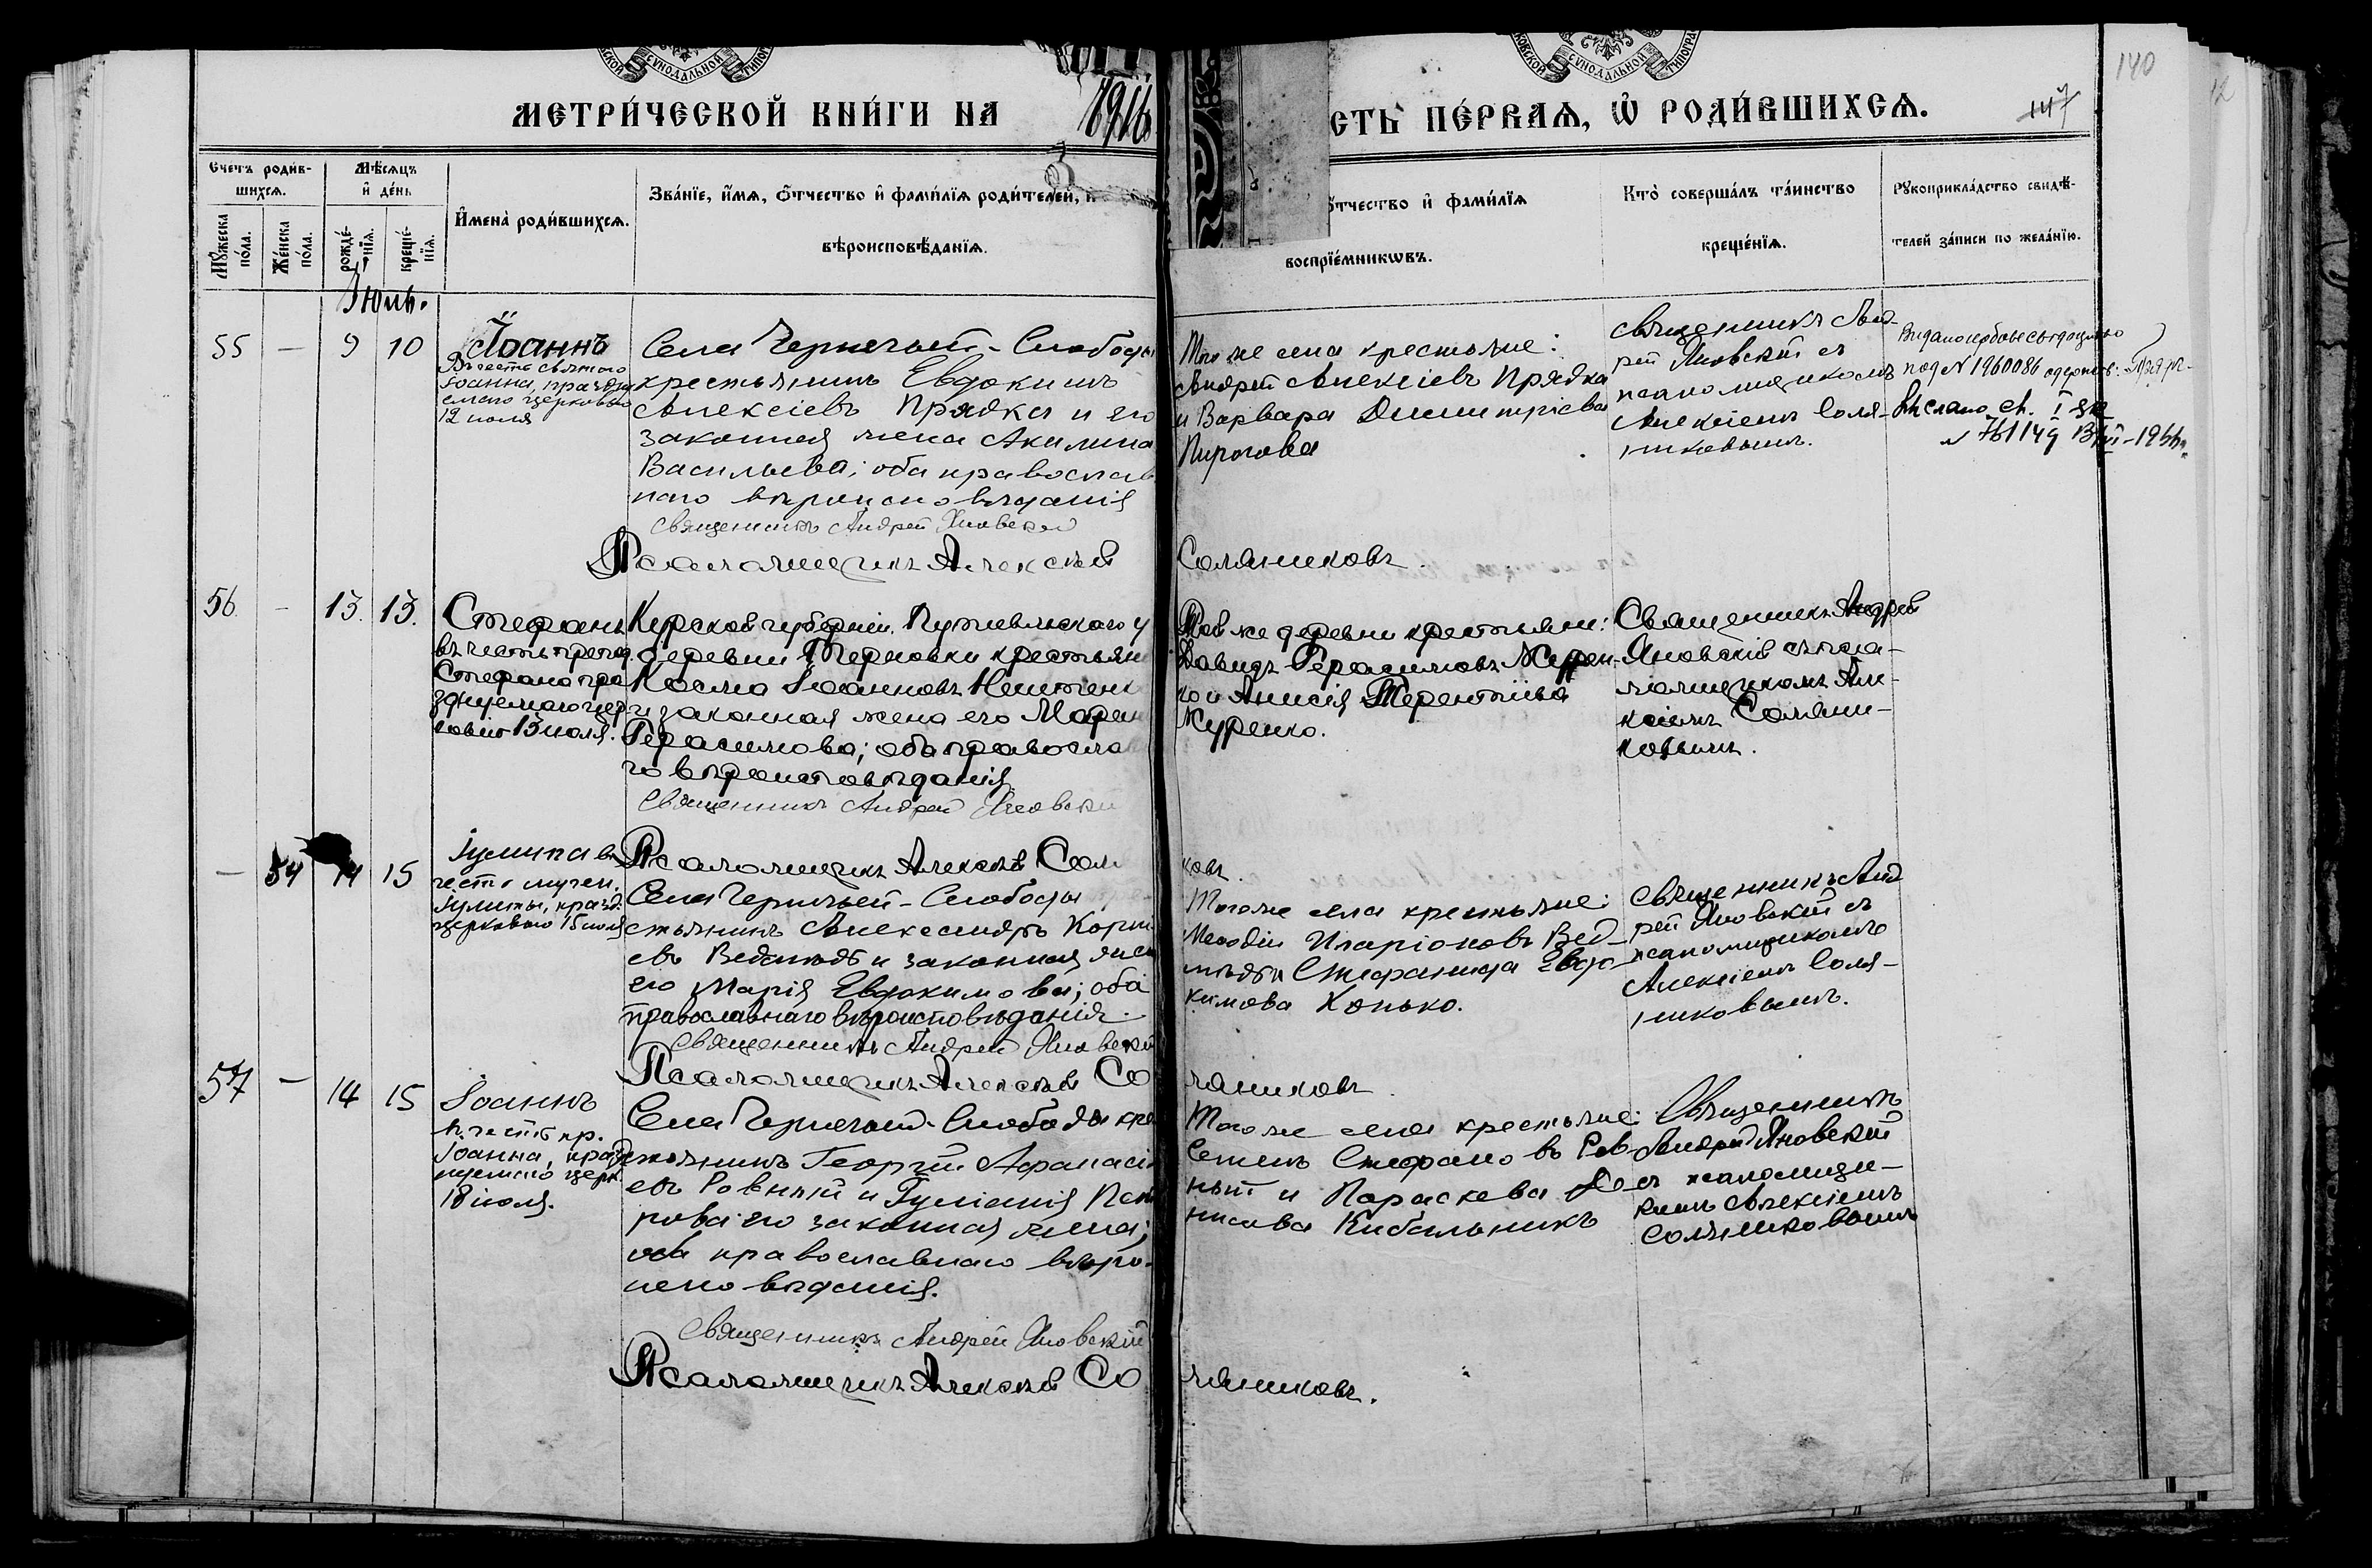 СѴНОДАЛЬНОЙ
СѴНОДАЛЬНОЙ ТИПОГРА
140
МЕТРИ́ЧЕСКОЙ КНИ́ГИ НА 1916
СТЬ ПЕ́РВАЯ, Ѿ РОДИ́ВШИХСЯ.
147
Счетъ родив-
шихся.
Мꙋжеска по́ла.
Же́нска по́ла.
Мѣ́сяцъ и де́нь
рожде́-нїя.
креще́-нїя.
И́мена̀ роди́вшихся.
Зва́нїе, и́мя, ѻ́тчество и фами́лїя роди́телей, и
вѣроисповѣ́данїя.
ѻ́тчество и фами́лїя
воспрїе́мникѡвъ.
Кто̀ соверша́лъ та́инство
креще́нїя.
Рꙋкоприкла́дство свидѣ́-
телей за́писи по жела́нїю.
Июль.
55 — 9 10
Іоаннъ
Въ честь святого
Іоанна, праздну
емаго церковью
12 июля
Села Чернечьей-Слободы
крестьянинъ Евдокимъ
Алексіевъ Прядка и его
законная жена Акилина
Васильева; оба православ
наго вѣроисповѣданія
Священникъ Андрей Яновскій
Псаломщикъ Алексѣй
Того же села крестьяне:
Андрей Алексіевъ Прядка
и Варвара Димитріева
Пирогова
Соляниковъ.
Священникъ Анд-
рей Яновскій съ
псаломщикомъ
Алексіемъ Соля-
никовымъ.
под № 1960086
№ 761149
56 — 13. 13.
Стефанъ
въ честь препод.
Стефана пра
зднуемаго цер
ковію 13 июля.
Курской губерніи. Путивльскаго у
деревни Терновки крестьян
Косма Іоанновъ
и законная жена его
Герасимова; оба правосла
го вѣроисповѣданія
Священникъ Андрей Яновскі
Псаломщикъ Алексѣй Сол
Той же деревни крестьяне:
Давидъ Герасимовъ Журен-
ко и Анисія Терентіева
Журенко.
ковъ.
Священникъ Андрей
Яновскій съ пса-
ломщикомъ Але-
ксіемъ Соляни-
ковымъ.
— 54 14 15
Іулита въ
честь мучен.
Іулиты, празд.
церковью 15 июля
Села Чернечьей-Слободы
стьянинъ Александръ Корни
евъ Ведмѣдь и законная жен
его Марія Евдокимова; оба
православнаго вѣроисповѣданія.
Священникъ Андрей Яновскій
Псаломщикъ Алексѣй Со
Того же села крестьяне:
Меѳодій Иларіоновъ Вед-
мѣдь и Стефанида Евдо-
кимова Конько.
ляниковъ
Священникъ Анд
рей Яновскій съ
псаломщикомъ
Алексіемъ Соля-
никовымъ.
57 — 14 15
Іоаннъ
въ честь пр.
Іоанна, празд
нуемаго церк.
18 июля.
Села Чернечьей-Слободы кре
стьянинъ Георгій Афанасі
евъ Ровный и Іуліанія Пет
рова его законная жена;
оба православнаго вѣро-
исповѣданія.
Священникъ Андрей Яновскій
Псаломщикъ Алексѣй Со
Того же села крестьяне:
Семенъ Стефановъ Ров-
ный и Параскева
Кибальникъ
ляниковъ.
Священникъ
Андрей Яновскій
съ псаломщи-
комъ Алексіемъ
Соляниковымъ